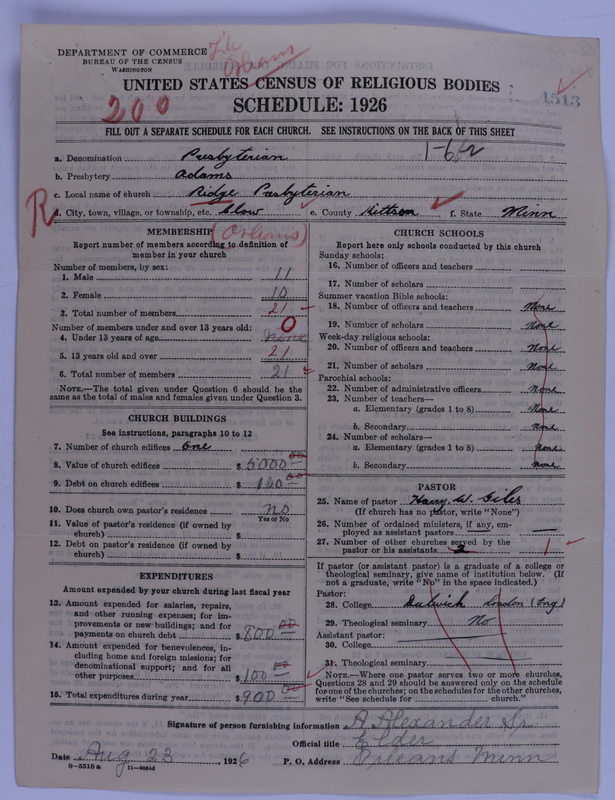 DEPARTMENT OF COMMERCE
BUREAU OF THE CENSUS
WASHINGTON
Orleans
UNITED STATES CENSUS OF RELIGIOUS BODIES
SCHEDULE: 1926
200
1513
FILL OUT A SEPARATE SCHEDULE FOR EACH CHURCH. SEE INSTRUCTIONS ON THE BACK OF THIS SHEET
a. Denomination Presbyterian
b. Presbytery Adams
c. Local name of church Ridge Presbyterian
R
d. City, town, village, or township, etc. Clow e. County Kittson f. State Minn
(Orleans)
MEMBERSHIP
Report number of members according to definition of member in your church
Number of members, by sex:
1. Male 11
2. Female 10
3. Total number of members 21
Number of members under and over 13 years old:
4. Under 13 years of age None 0
5. 13 years old and over 21
6. Total number of members 21
NOTE.—The total given under Question 6 should be the same as the total of males and females given under Question 3.
CHURCH BUILDINGS
See instructions, paragraphs 10 to 12
7. Number of church edifices One
8. Value of church edifices $ 5000 00
9. Debt on church edifices $ 100 00
10. Does church own pastor's residence No
Yes or No
11. Value of pastor's residence (if owned by church) $
12. Debt on pastor's residence (if owned by church) $
EXPENDITURES
Amount expended by your church during last fiscal year
13. Amount expended for salaries, repairs, and other running expenses; for improvements or new buildings; and for payments on church debt $ 800 00
14. Amount expended for benevolences, including home and foreign missions; for denominational support; and for all other purposes $ 100 00
15. Total expenditures during year $ 900 00
CHURCH SCHOOLS
Report here only schools conducted by this church
Sunday schools:
16. Number of officers and teachers
17. Number of scholars
Summer vacation Bible schools:
18. Number of officers and teachers None
19. Number of scholars None
Week-day religious schools:
20. Number of officers and teachers None
21. Number of scholars None
Parochial schools:
22. Number of administrative officers None
23. Number of teachers—
a. Elementary (grades 1 to 8) None
b. Secondary None
24. Number of scholars—
a. Elementary (grades 1 to 8) None
b. Secondary None
PASTOR
25. Name of pastor Harry W. Giles
(If church has no pastor, write "None")
26. Number of ordained ministers, if any, employed as assistant pastors —
27. Number of other churches served by the pastor or his assistants 2 1
If pastor (or assistant pastor) is a graduate of a college or theological seminary, give name of institution below. (If not a graduate, write "No" in the space indicated.)
Pastor:
28. College Dulwich London (Eng)
29. Theological seminary No
Assistant pastor:
30. College
31. Theological seminary
NOTE.—Where one pastor serves two or more churches, Questions 28 and 29 should be answered only on the schedule for one of the churches; on the schedules for the other churches, write "See schedule for church."
Signature of person furnishing information A Alexander Sr
Official title Elder
Date Aug 23, 1926 P. O. Address Orleans Minn
8—5518 a